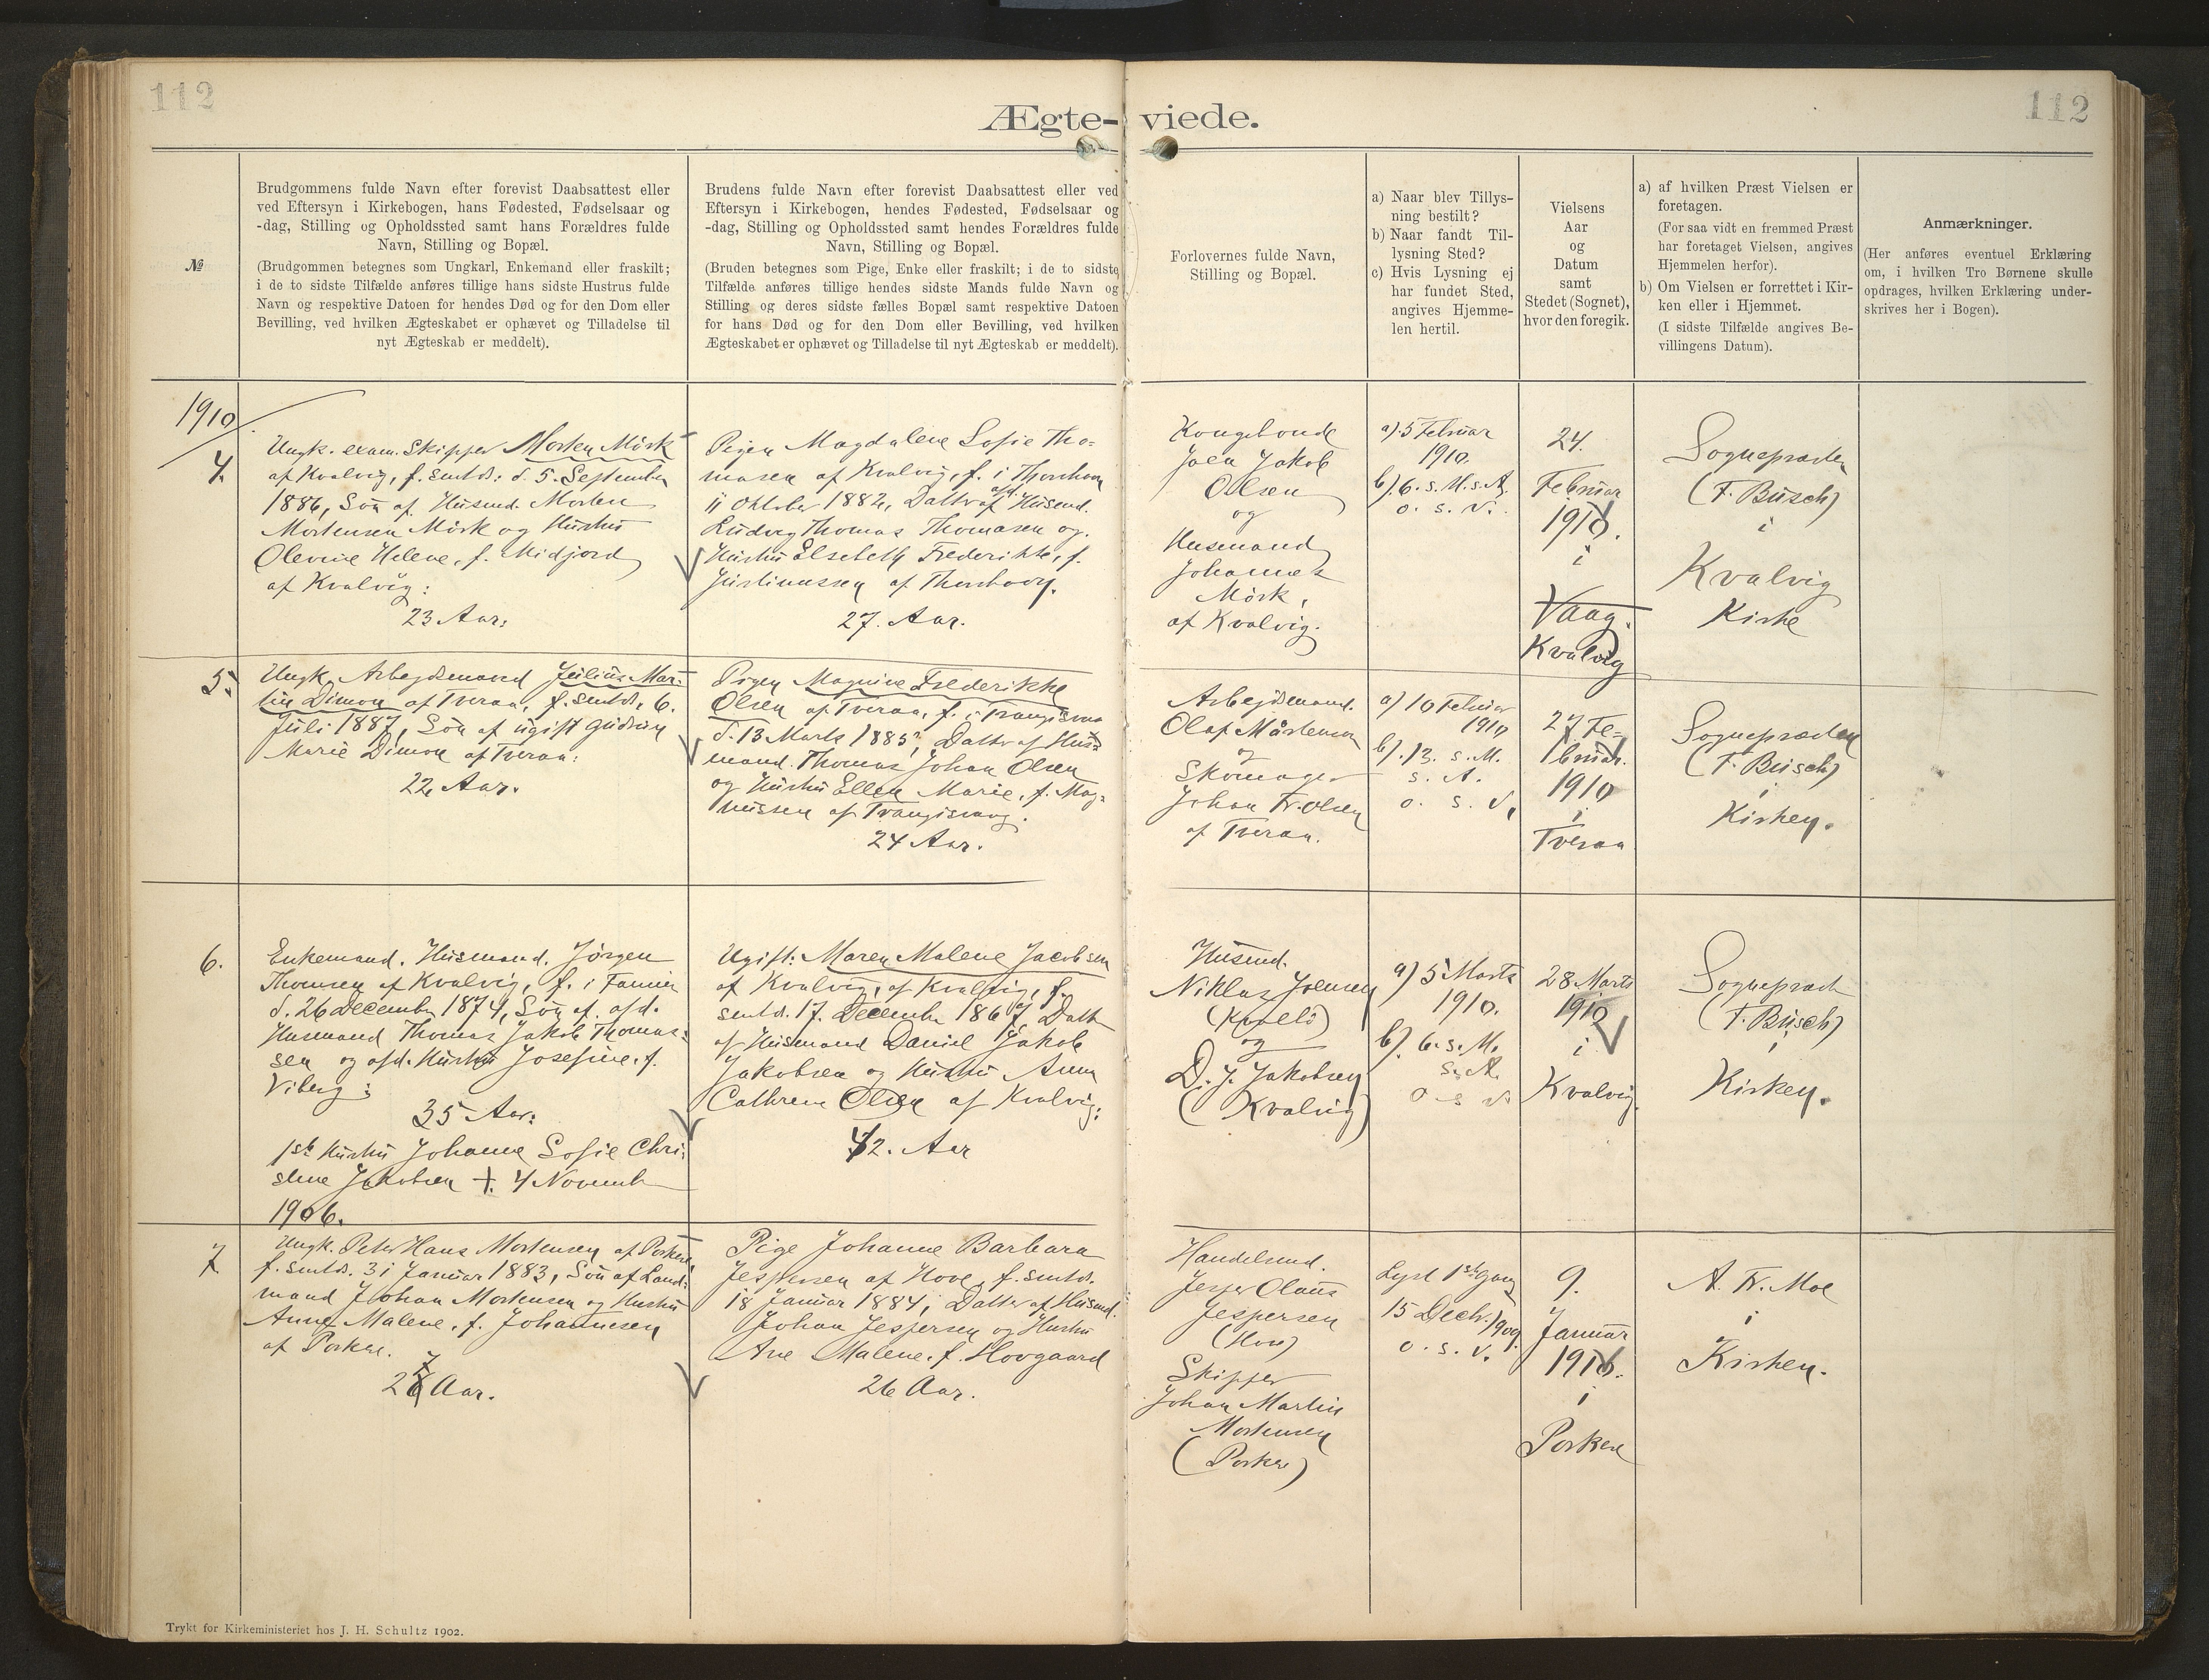 112
112
Ægte-viede.
№
Brudgommens fulde Navn efter forevist Daabsattest eller
ved Eftersyn i Kirkebogen, hans Fødested, Fødselsaar og
-dag, Stilling og Opholdssted samt hans Forældres fulde
Navn, Stilling og Bopæl.
(Brudgommen betegnes som Ungkarl, Enkemand eller fraskilt;
i de to sidste Tilfælde anføres tillige hans sidste Hustrus fulde
Navn og respektive Datoen for hendes Død og for den Dom eller
Bevilling, ved hvilken Ægteskabet er ophævet og Tilladelse til
nyt Ægteskab er meddelt).
Brudens fulde Navn efter forevist Daabsattest eller ved
Eftersyn i Kirkebogen, hendes Fødested, Fødselsaar og
-dag, Stilling og Opholdssted samt hendes Forældres fulde
Navn, Stilling og Bopæl.
(Bruden betegnes som Pige, Enke eller fraskilt; i de to sidste
Tilfælde anføres tillige hendes sidste Mands fulde Navn og
Stilling og deres sidste fælles Bopæl samt respektive Datoen
for hans Død og for den Dom eller Bevilling, ved hvilken
Ægteskabet er ophævet og Tilladelse til nyt Ægteskab er meddelt).
Forlovernes fulde Navn,
Stilling og Bopæl.
a) Naar blev Tillys-
ning bestilt?
b) Naar fandt Til-
lysning Sted?
c) Hvis Lysning ej
har fundet Sted,
angives Hjemme-
len hertil.
Vielsens
Aar
og
Datum
samt
Stedet (Sognet),
hvor den foregik.
a) af hvilken Præst Vielsen er
foretagen.
(For saa vidt en fremmed Præst
har foretaget Vielsen, angives
Hjemmelen herfor).
b) Om Vielsen er forrettet i Kir-
ken eller i Hjemmet.
(I sidste Tilfælde angives Be-
villingens Datum).
Anmærkninger.
(Her anføres eventuel Erklæring
om, i hvilken Tro Børnene skulle
opdrages, hvilken Erklæring under-
skrives her i Bogen).
1910
4.
Ungk. exam. Skipper Morten Mörk
af Kvalvig, f. smtds: d. 5. September
1886, Sön af Husmd. Morten
Mortensen Mörk og Hustru
Olevine Helene, f. Midjord
af Kvalvig:
23 Aar:
Pigen Magdalene Sofie Tho=
masen af Kvalvig, f. i Thorshavn
11 Oktober 1882, Datter af afd. Husmd.
Ludvig Thomas Thomasen og
Hustru Elsebeth Frederikke, f.
Justinussen af Thorshavn.
27. Aar.
Kongebonde
Joen Jakob
Olsen
og
Husmand
Johannes
Mörk,
af Kvalvig.
a) 5 Februar
1910.
b) 6. s. M. s. A.
o. s. v.
24.
Februar
1910.
i
Vaag.
Kvalvig
Sognepræsten
(F. Busch)
i
Kvalvig
Kirke
5.
Ungk. Arbejdsmand Julius Mar=
tin Dimon af Tveraa, f. smtds. 6.
Juli 1887, Sön af ugift Gudrun
Marie Dimon af Tveraa:
22 Aar.
Pigen Magnine Frederikke
Olsen af Tveraa, f. i Trangisvaag
d. 13 Marts 1885, Datter af Hus=
mand. Thomas Johan Olsen
og Hustru Ellen Marie, f. Mag=
nussen af Trangisvaag.
24 Aar.
Arbejdsmand.
Olaf Mårtensen
og
Skomager
Johan Fr. Olsen
af Tveraa.
a) 10 Februar
1910
b). 13. s. M.
s. A.
o. s. v.
27 Fe=
bruar.
1910
i
Tveraa
Sognepræsten
(F. Busch)
i
Kirken.
6.
Enkemand. Husmand. Jörgen
Thomsen af Kvalvig, f. i Famien
d. 26 December 1874, Sön af afd.
Husmand Thomas Jakob Thomas=
sen og afd. Hustru Josefine, f.
Viberg:
35 Aar:
1ste Hustru Johanne Sofie Chri=
stine Jakobsen †. 4 Novemb
1906.
Ugift: Maren Malene Jacobsen
af Kvalvig, af Kvalvig, f.
smtds. 17. December 1867, Datt
af Husmand Daniel Jakob
Jakobsen og Hustru Anna
Cathrine Olsen af Kvalvig:
42. Aar
Husmd.
Niklas Joensen
og
D. J. Jakobsen
(Kvalvig)
a) 5 Marts
1910.
b). 6. s. M.
s. A.
o. s. v.
28 Marts
1910
i
Kvalvig.
Sognepræst
(F. Busch)
i
Kirken.
7.
Ungk. Peter Hans Mortensen af Porkere
f. smtds. 31 Januar 1883, Sön af Land=
mand Johan Mortensen og Hustru
Anna Malene, f. Johannesen
af Porkere.
27 Aar.
Pige Johanne Barbara
Jespersen af Hove, f. smtds.
18 Januar 1884, Datter af Husmd.
Johan Jespersen og Hustru
Ane Malene. f. Hovgaard
26 Aar.
Handelsmd.
Jesper Olaus
Jespersen
(Hove)
Skipper
Johan Martin
Mortensen
(Porkere)
Lyst 1ste Gang
15 Decbr. 1909.
o. s. v.
9.
Januar
1910.
i
Porkere
A. Fr. Moe
i
Kirken.
Trykt for Kirkeministeriet hos J. H. Schultz 1902.